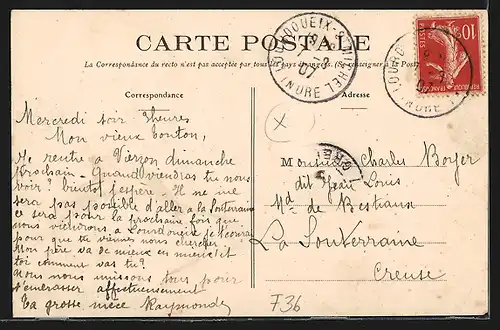 CARTE POSTALE
La Correspondance du recto n'est pas acceptée par tous les pays étrangers. (Se renseigner à la Poste)
Correspondance
Adresse
LOURDOUEIX-St-MICHEL
(INDRE)
07
10
POSTES
Mercredi soir 3heures
Mon vieux tonton,
Je rentre à Vierzon dimanche
prochain. Quand viendras tu nous
voir? bientôt j'espère. Il ne me
sera pas possible d'aller à la Souterraine
ce sera pour la prochaine fois que
nous viendrons à Lourdoueix je
pour que tu viennes nous chercher.
Mon père va de mieux en mieux et
toi comment vas tu?
Nous nous unissons tous pour
t'embrasser affectueusement
Ta grosse nièce Raymonde
Monsieur Charles Boyer
dit Jean Louis
Md de Bestiaux
La Souterraine
Creuse
F36